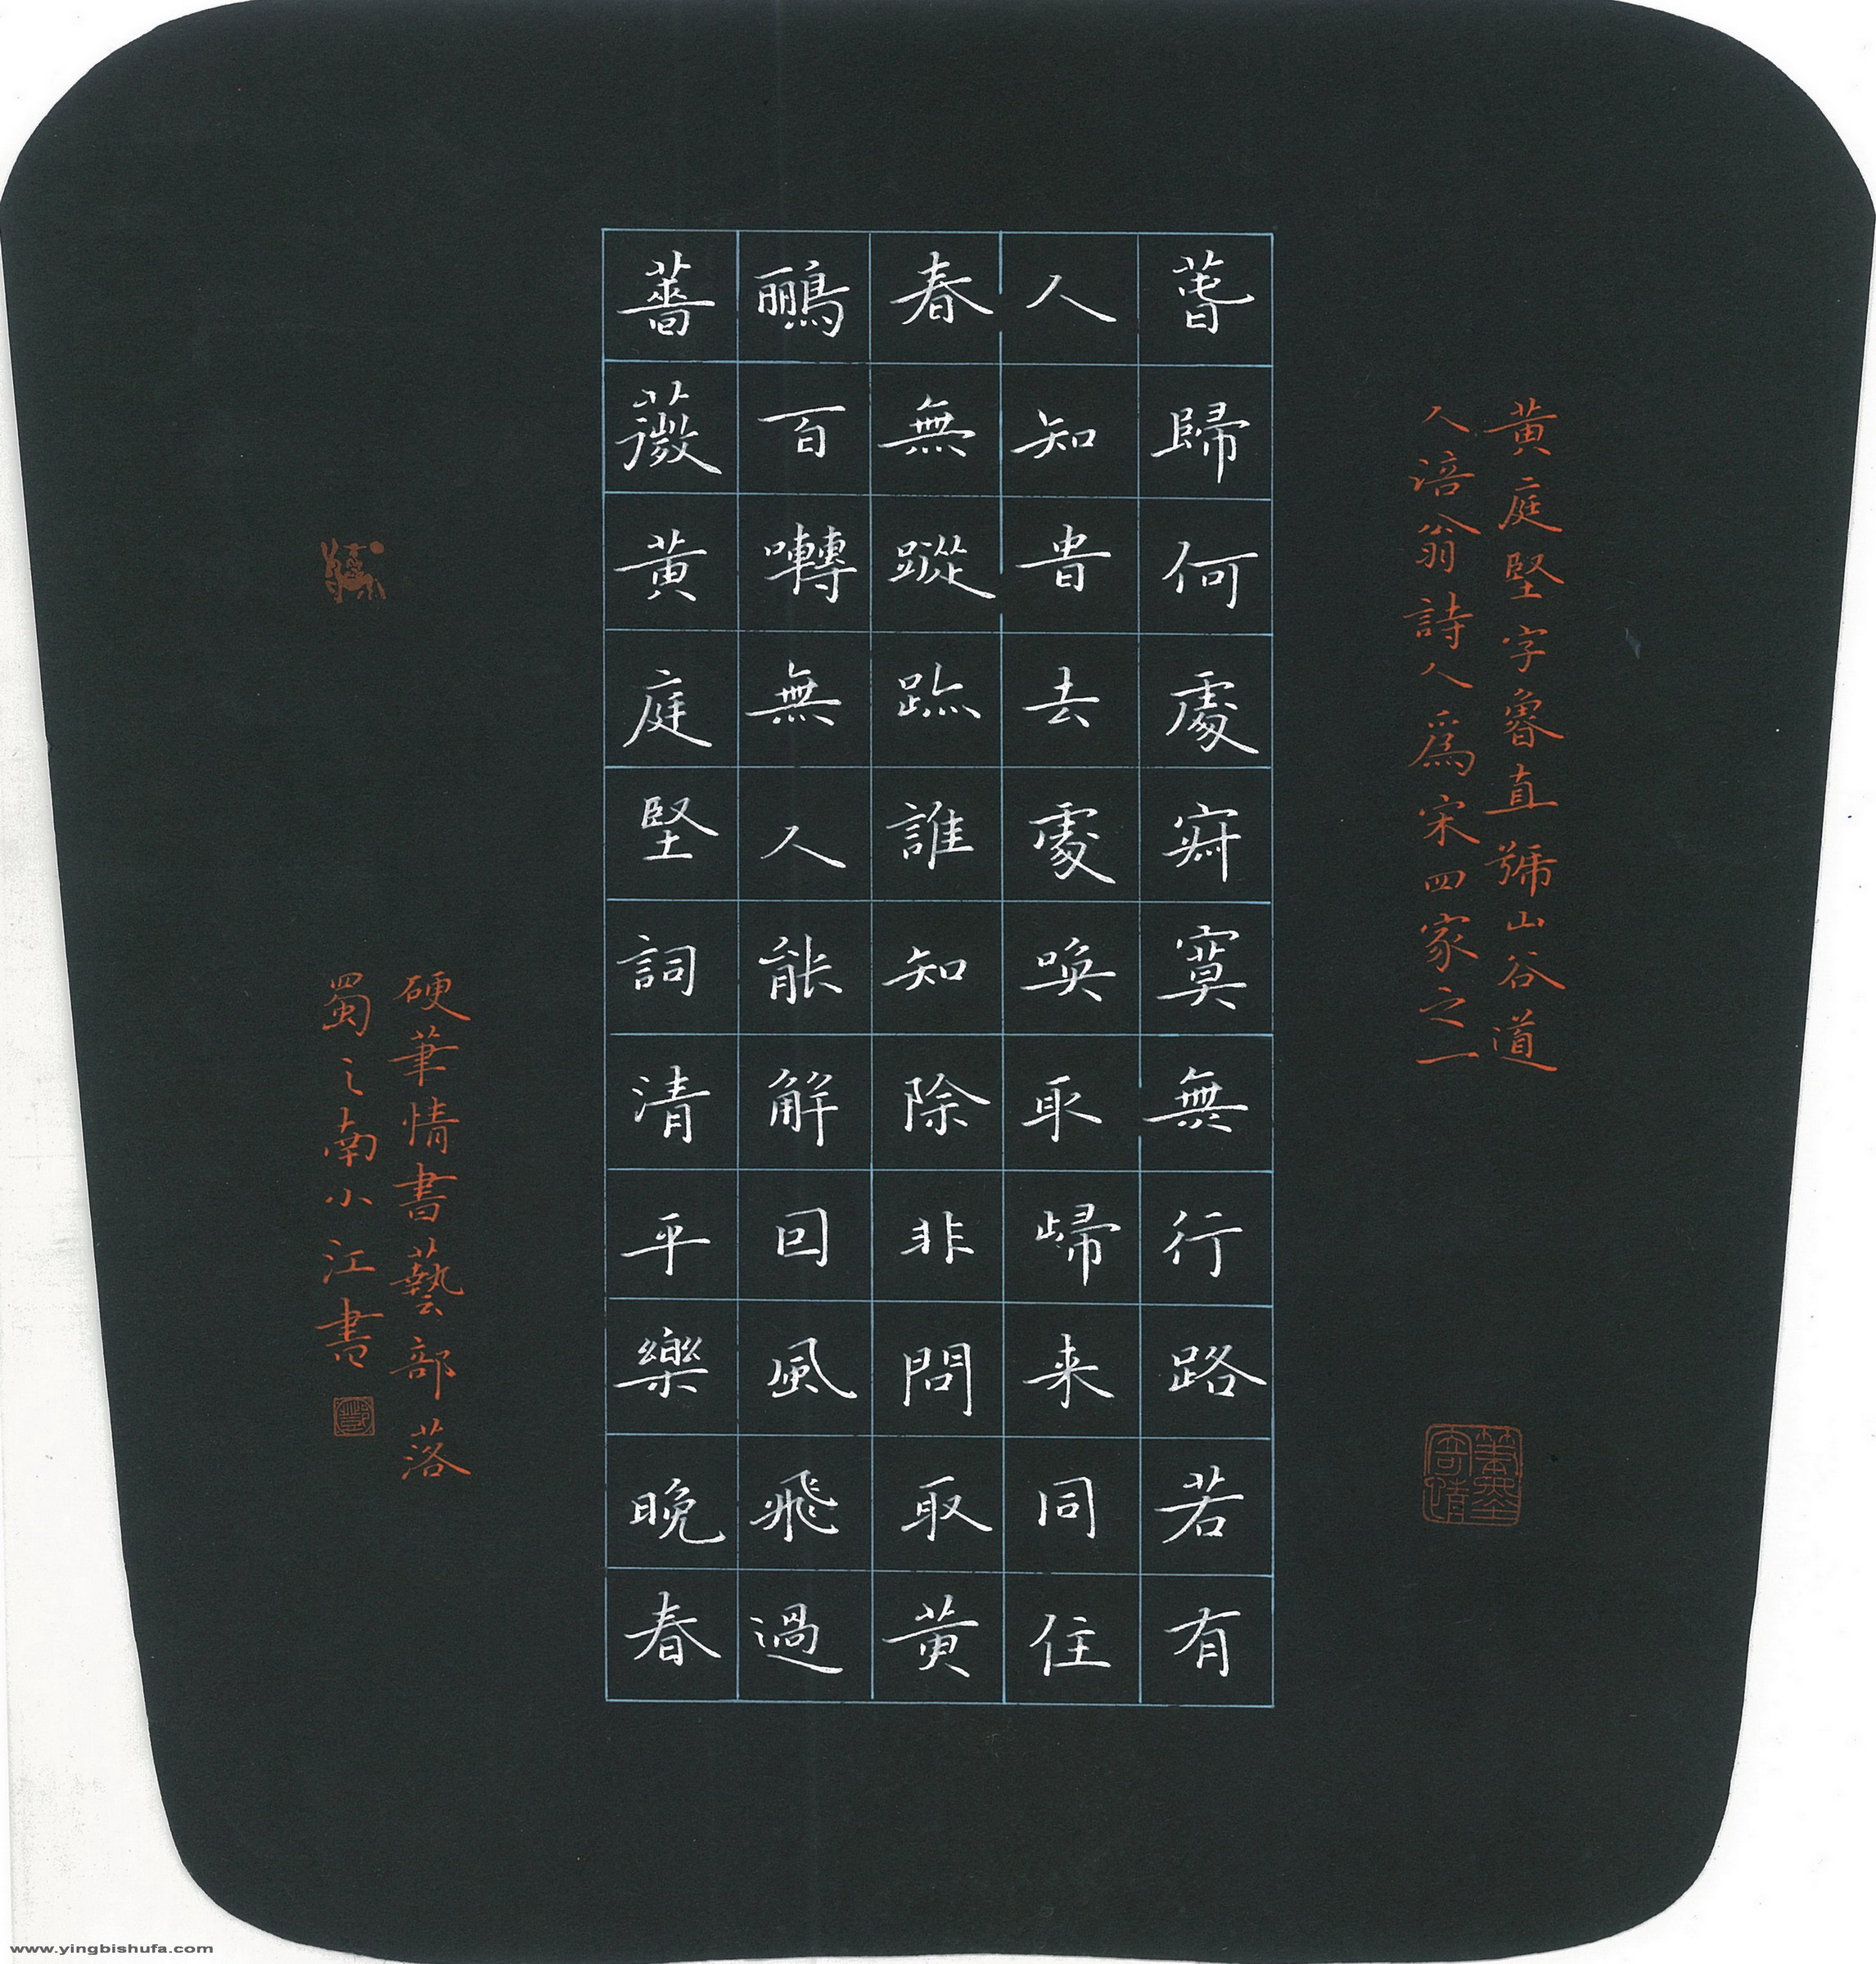 黃庭堅字魯直號山谷道
人涪翁詩人爲宋四家之一
萅歸何處寂寞無行路若有
人知旾去處喚取歸来同住
春無蹤跡誰知除非問取黃
鸝百囀無人能解回風飛過
薔薇黃庭堅詞清平樂晚春
硬筆情書藝部落
蜀之南小江書
www.yingbishufa.com